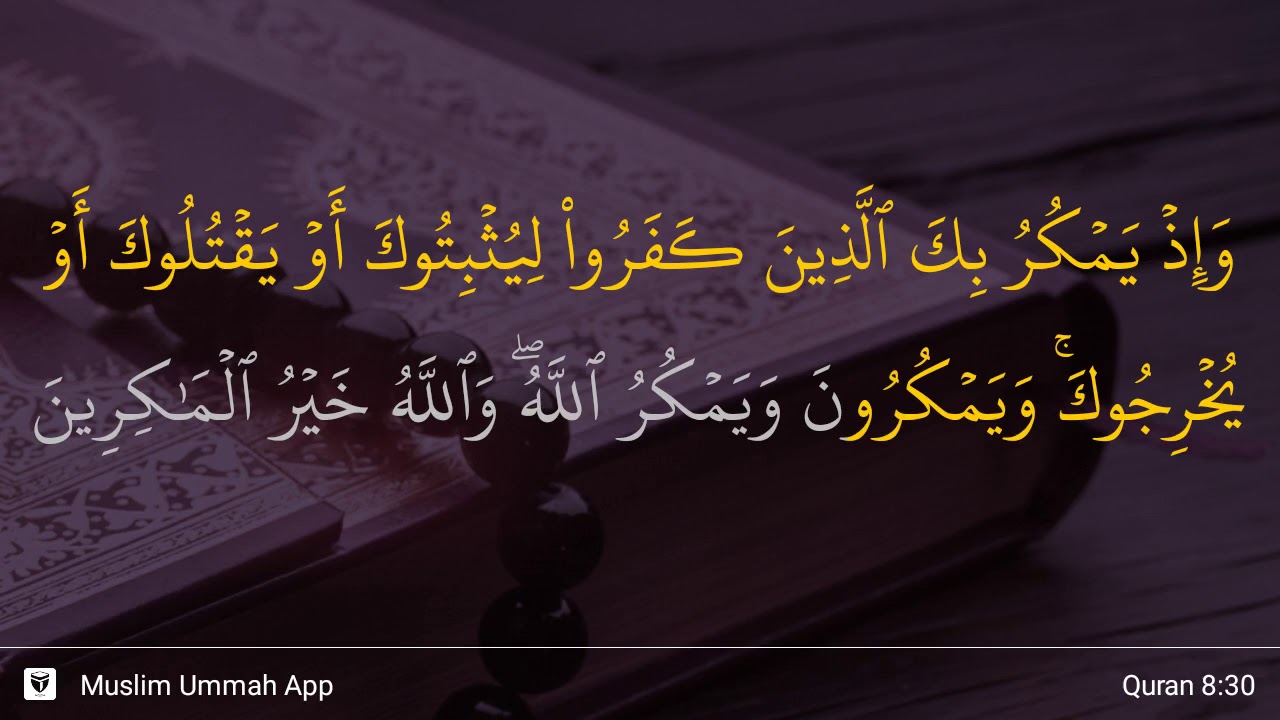 وَإِذْ يَمْكُرُ بِكَ ٱلَّذِينَ كَفَرُوا۟ لِيُثْبِتُوكَ أَوْ يَقْتُلُوكَ أَوْ
يُخْرِجُوكَ ۚ وَيَمْكُرُونَ وَيَمْكُرُ ٱللَّهُ ۖ وَٱللَّهُ خَيْرُ ٱلْمَـٰكِرِينَ
Muslim Ummah App
Quran 8:30